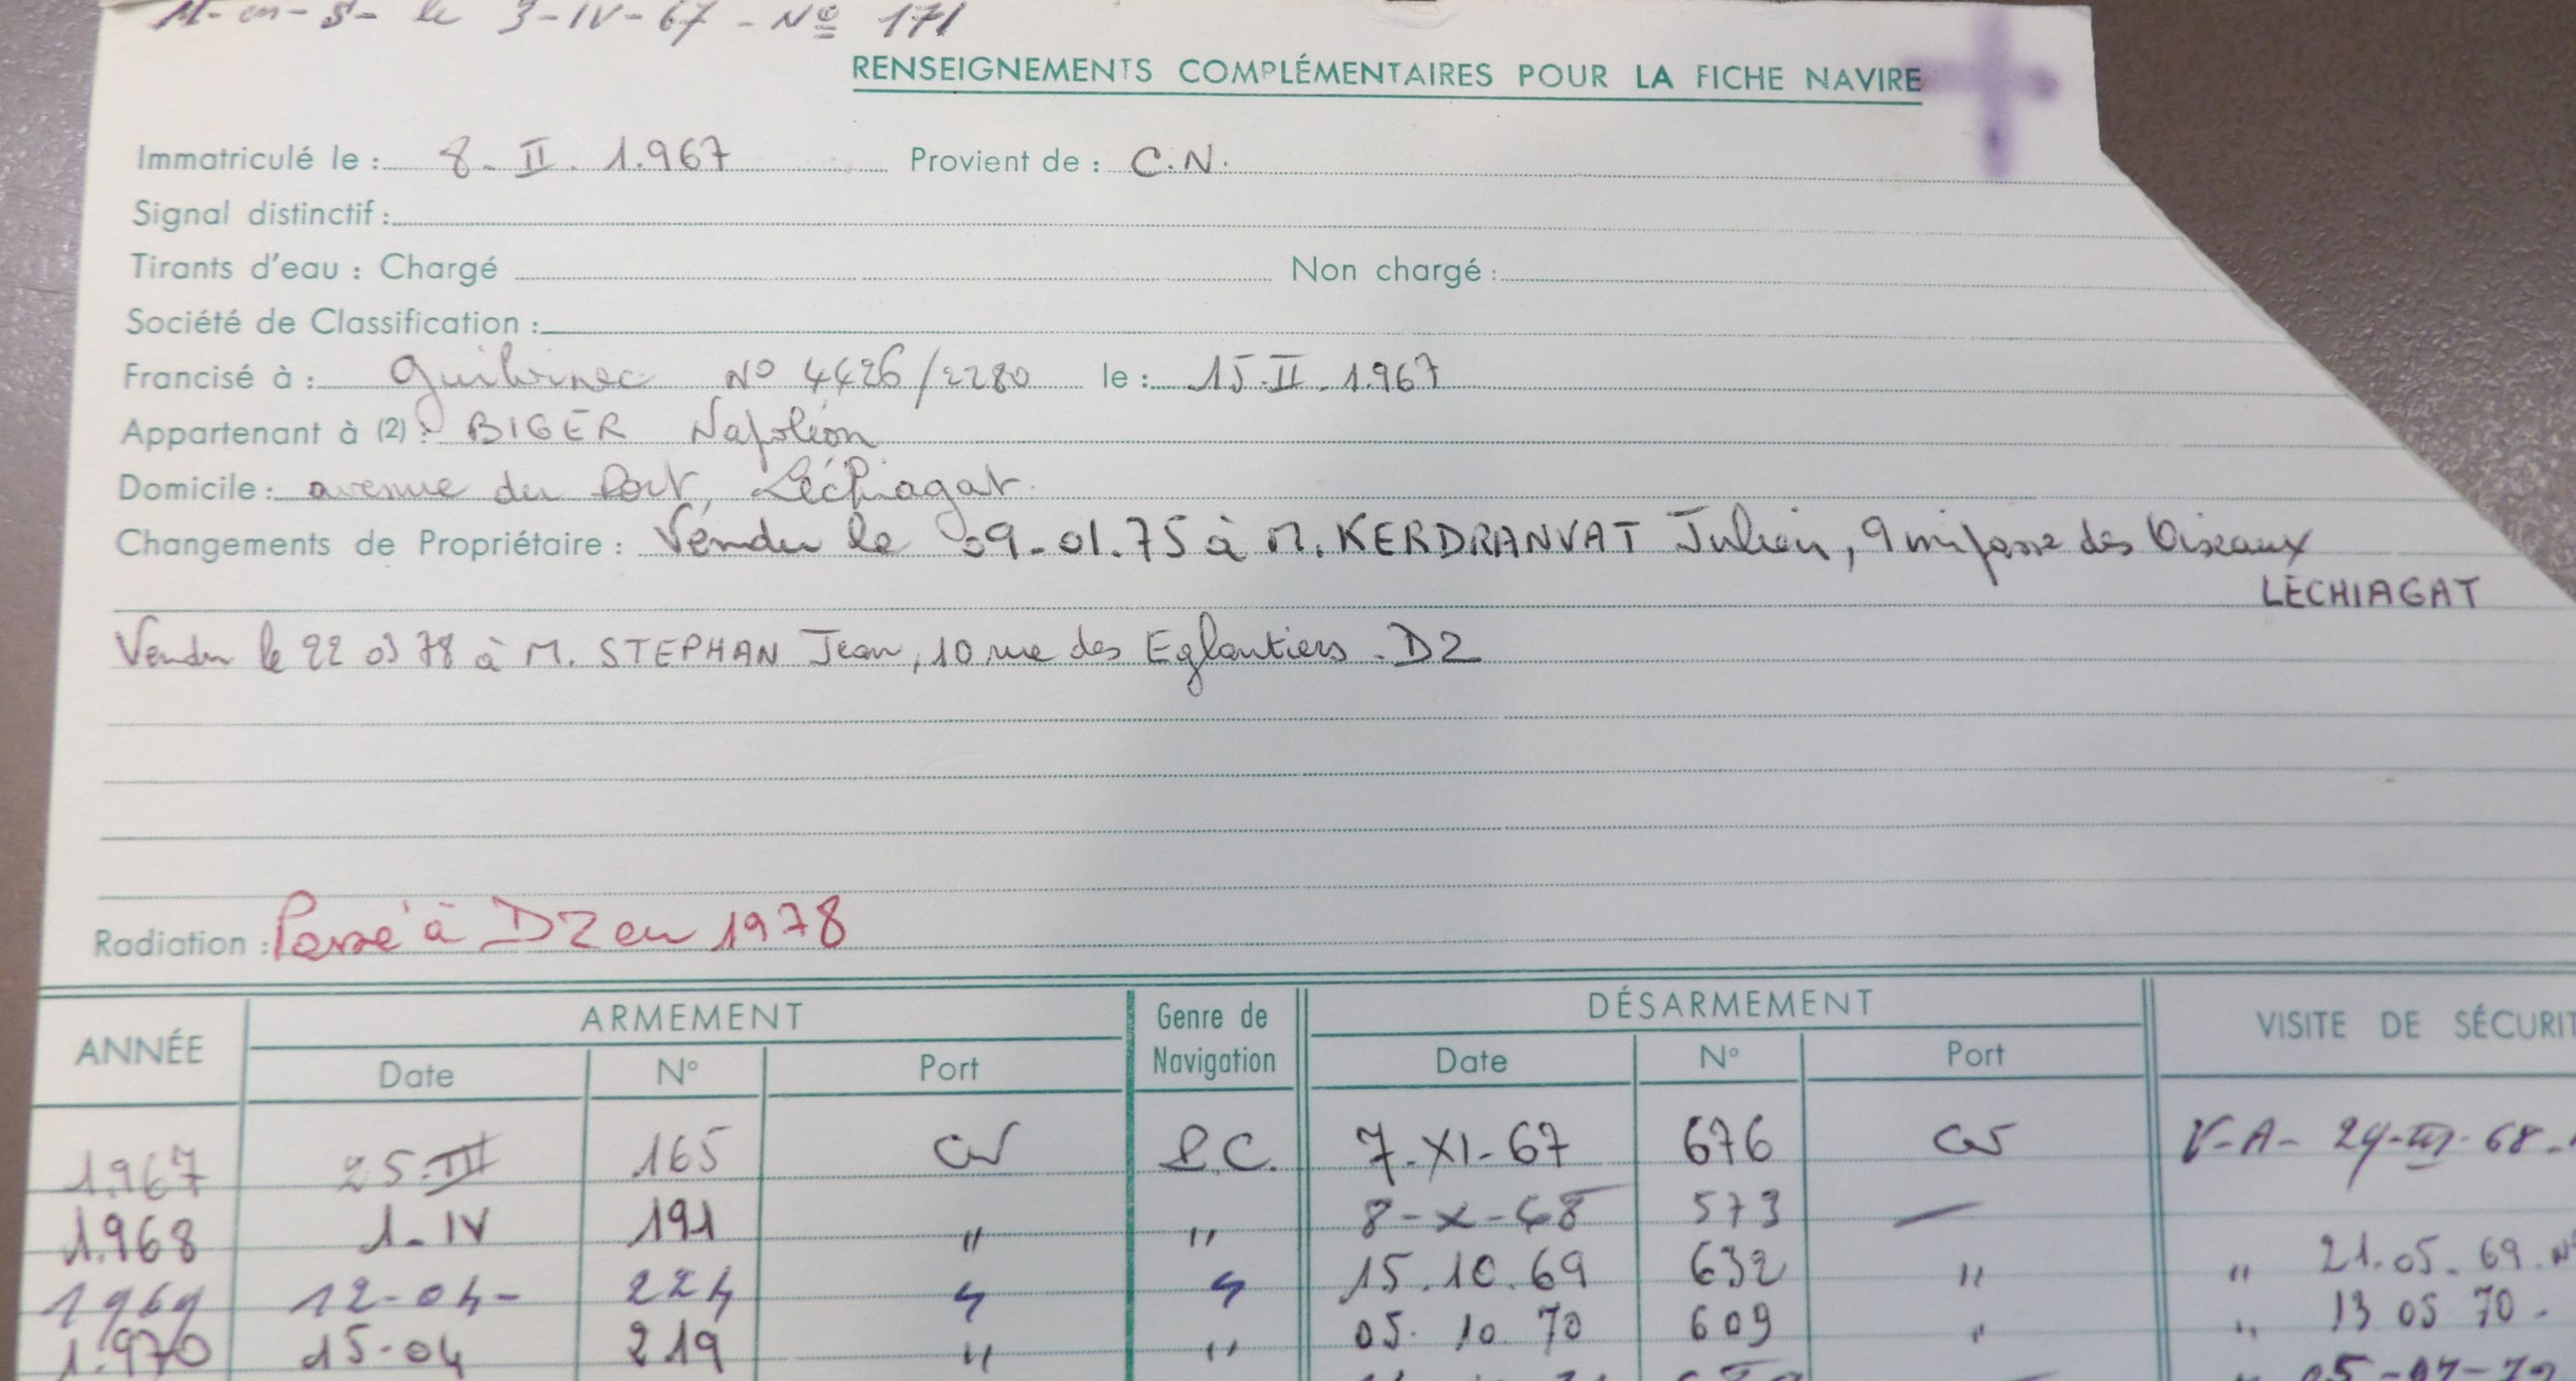 M-en-S- le 3-IV-67 - Nº 171
RENSEIGNEMENTS COMPLÉMENTAIRES POUR LA FICHE NAVIRE
Immatriculé le : 8. II. 1.967 Provient de : C.N.
Signal distinctif :
Tirants d'eau : Chargé Non chargé :
Société de Classification :
Francisé à : Guilvinec Nº 4426/2280 le : 15.II.1.967
Appartenant à (2) : BIGER Napoléon
Domicile : avenue du Port, Léchiagat.
Changements de Propriétaire : Vendu le 09-01.75 à M. KERDRANVAT Julien, 9 impasse des Oiseaux
LÉCHIAGAT
Vendu le 22 03 78 à M. STEPHAN Jean, 10 rue des Eglantiers - DZ
Radiation : Passé à DZ en 1978
ANNÉE ARMEMENT Genre de Navigation DÉSARMEMENT VISITE DE SÉCURIT
Date Nº Port Date Nº Port
1.967 25-III 165 GV P.C. 7-XI-67 676 GV V-A- 29-III-68-
1.968 1-IV 191 " " 8-X-68 573 —
1969 12-04- 224 " " 15.10.69 632 " " 21.05.69. Nº
1.970 15-04 219 " " 05.10.70 609 " " 13 05 70 -